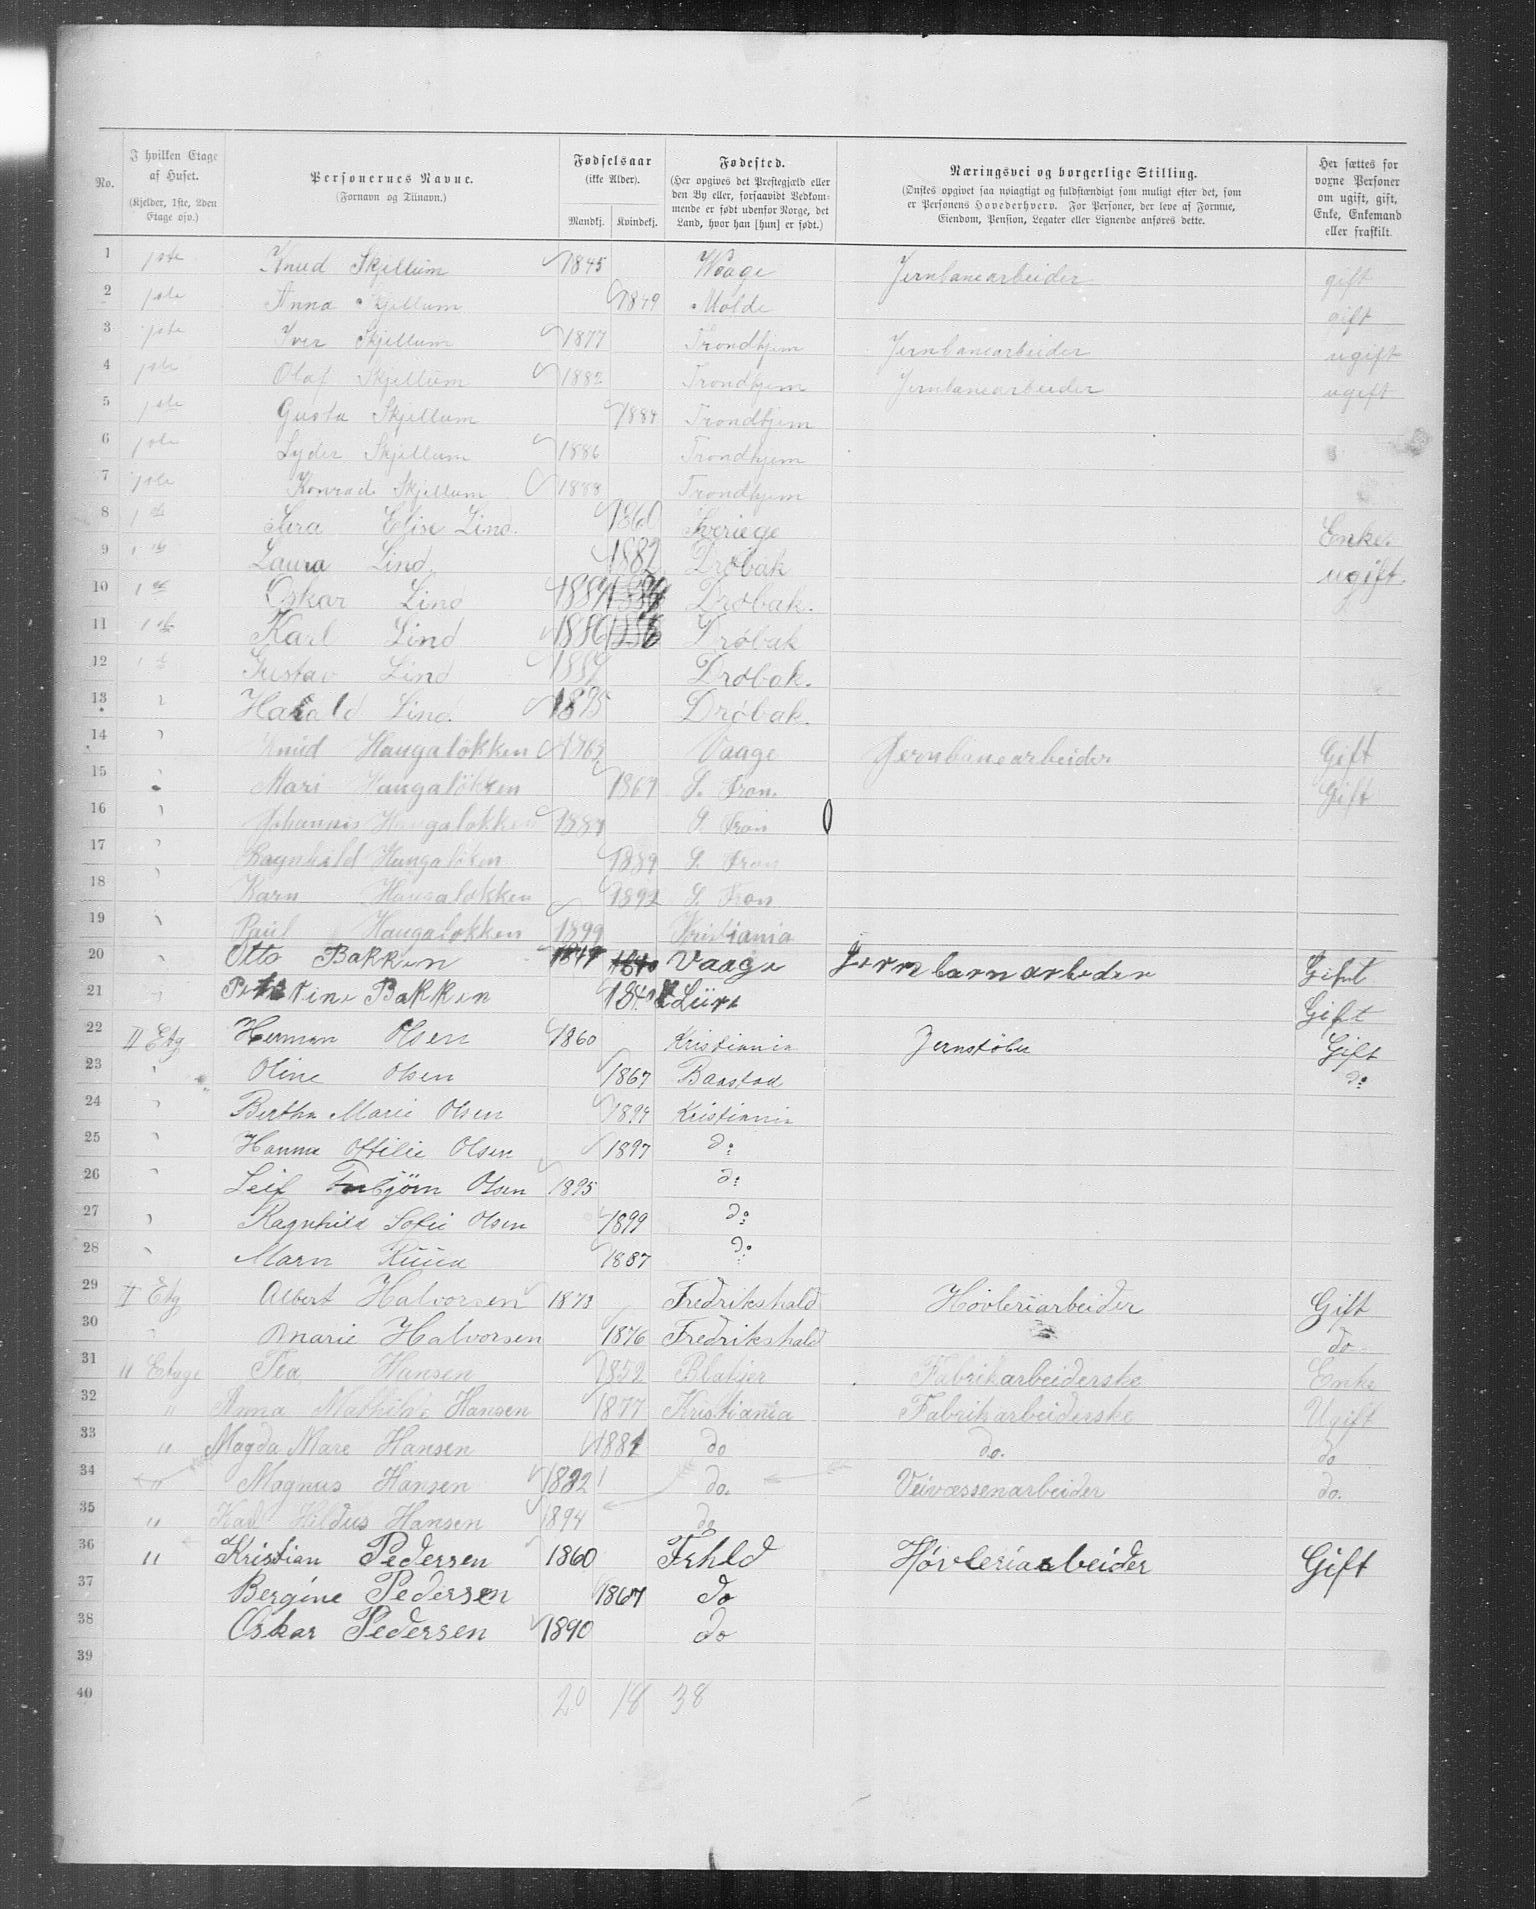 No. | I hvilken Etage af Huset. (Kjelder, 1ste, 2den Etage osv.) | Personernes Navne. (Fornavn og Tilnavn.) | Fødselsaar (ikke Alder). Mandkj. Kvindekj. | Fødested. (Her opgives det Prestegjæld eller den By eller, forsaavidt Vedkommende er født udenfor Norge, det Land, hvor han [hun] er født.) | Næringsvei og borgerlige Stilling. (Ønskes opgivet saa nøiagtigt og fuldstændigt som muligt efter det, som er Personens Hovederhverv. For Personer, der leve af Formue, Eiendom, Pension, Legater eller Lignende anføres dette.) | Her sættes for vorne Personer om ugift, gift, Enke, Enkemand eller fraskilt.
1 1ste Knud Skjellum 1845 Waage Jernbanearbeider gift
2 1ste Anna Skjellum 1849 Molde gift
3 1ste Iver Skjellum 1877 Trondhjem Jernbanearbeider ugift
4 1ste Olaf Skjellum 1882 Trondhjem Jernbanearbeider ugift
5 1ste Gusta Skjellum 1884 Trondhjem
6 1ste Lyder Skjellum 1886 Trondhjem
7 1ste Konrad Skjellum 1888 Trondhjem
8 1ste Elise Lind. 1860 Sveriege Enke.
9 1ste Laura Lind. 1882 Drøbak ugift.
10 1ste Oskar Lind 1884 Drøbak.
11 1ste Karl Lind 1886 1886 Drøbak
12 1ste Gustav Lind 1889 Drøbak.
13 " Harald Lind. 1895 Drøbak.
14 " Knud Haugaløkken Vaage Jernbanearbeider Gift
15 " Mari Haugaløkken S. Fron. Gift
16 " Johannes Haugaløkken S. Fron
17 " Ragnhild Haugaløken 1889 S. Fron
18 Karn Haugaløkken 1892 S. Fron
19 " Paul Haugaløkken 1899 Kristiania
20 " Otto Bakken Vaage Jernbarnarbeder Gift
21 " Bakken Gift
22 II Etg Herman Olsen 1860 Kristiania Jernstøber Gift
23 " Oline Olsen 1867 Baastad do
24 " Bertha Marie Olsen 1894 Kristiania
25 " Hanna Ottilie Olsen 1897 do
26 " Leif Olsen 1895 do
27 " Ragnhild Sofie Olsen 1899 do
28 " Marn 1887 do
29 II Etg Albert Halvorsen 1873 Fredrikshald Høvleriarbeider Gift
30 " Marie Halvorsen 1876 Fredrikshald do
31 II Etage Tea Hansen 1852 Fabrikarbeiderske Enke
32 " Anna Mathilde Hansen 1877 Kristiania Fabrikarbeiderske Ugift
33 " Magda Mare Hansen 1881 do do. do
34 " Magnus Hansen 1882 do. Veivæssenarbeider do.
35 " Hildus Hansen 1894 do
36 " Kristian Pedersen 1860 Frhld Høvleriarbeider Gift
37 Bergine Pedersen 1867 do
38 Oskar Pedersen 1890 do
39
40 20 18 38